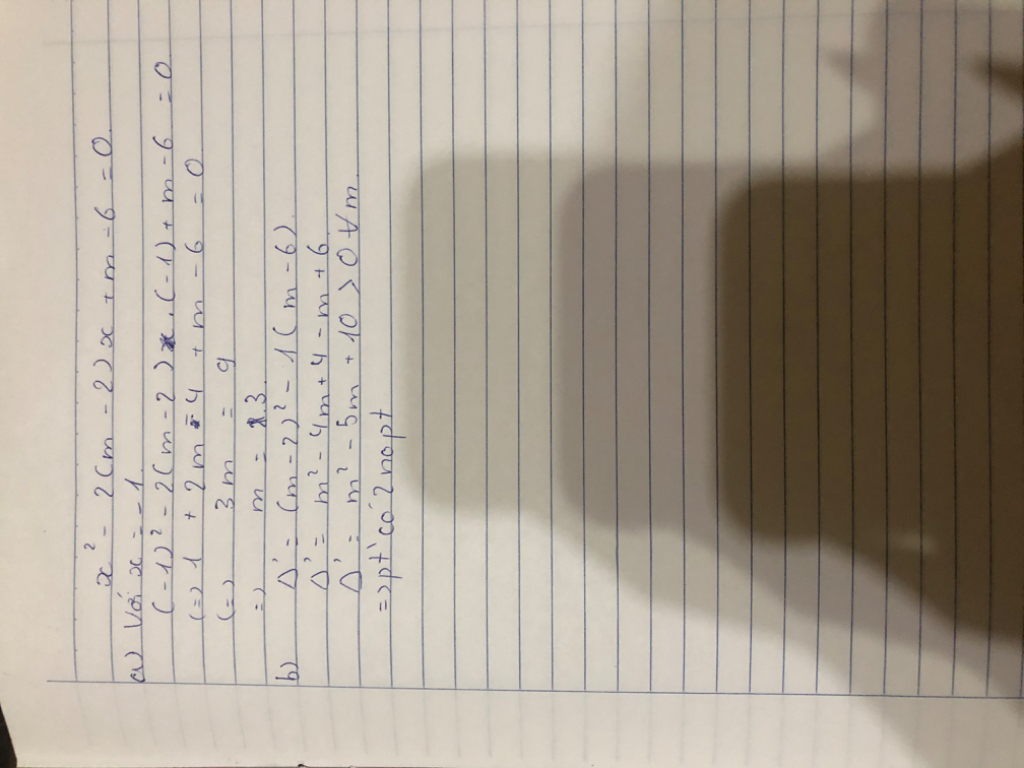 x² - 2(m - 2)x + m - 6 = 0.
a) Với x = -1
(-1)² - 2(m - 2).(-1) + m - 6 = 0
(=) 1 + 2m - 4 + m - 6 = 0
(=) 3m = 9
=) m = 3.
b) Δ' = (m - 2)² - 1(m - 6).
Δ' = m² - 4m + 4 - m + 6
Δ' = m² - 5m + 10 > 0 ∀m.
=) pt có 2 nopt